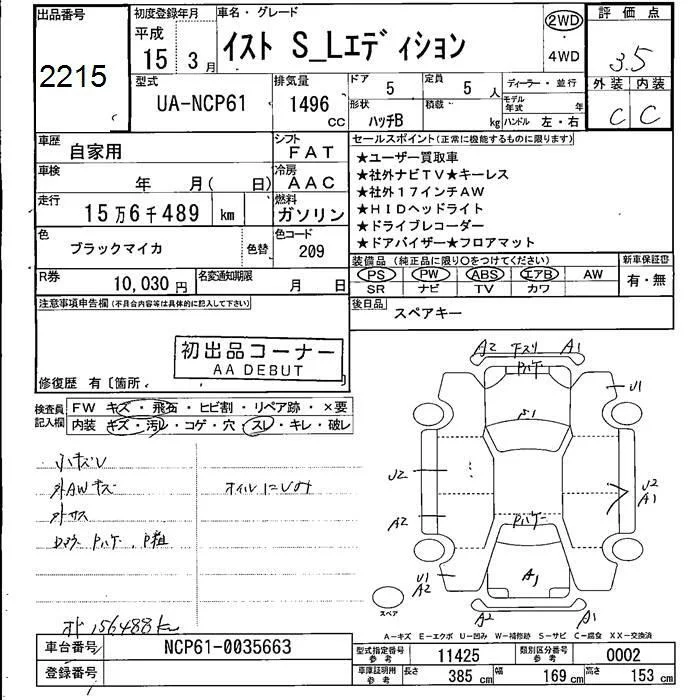 出品番号
2215
初度登録年月
平成
15 3月
車名・グレード
イスト S_Lエディション
2WD
・
4WD
評価点
3.5
外装 内装
C C
型式
UA-NCP61
排気量
1496
cc
ドア
5
定員
5 人
形状
ハッチB
積載
kg
ディーラー・並行
モデル年式 年
ハンドル 左・右
車歴
自家用
シフト
FAT
車検
年 月( 日)
冷房
AAC
走行
15万6千489 km
燃料
ガソリン
色
ブラックマイカ
色替
色コード
209
R券
10,030円
名変通知期限
月 日
セールスポイント(正常に機能するものに限ります)
★ユーザー買取車
★社外ナビTV★キーレス
★社外17インチAW
★HIDヘッドライト
★ドライブレコーダー
★ドアバイザー★フロアマット
装備品 (純正品に限り○をつけてください)
PS PW ABS エアB AW
SR ナビ TV カワ
新車保証書
有・無
後日品
スペアキー
注意事項申告欄(不具合内容等は具体的に記入して下さい)
初出品コーナー
AA DEBUT
修復歴 有〔箇所.
検査員
記入欄
FW キズ・飛石・ヒビ割・リペア跡・×要
内装 キズ・汚レ・コゲ・穴・スレ・キレ・破レ
小キズレ
外AWキズ
オイルにじみ
外サス
Pハゲ、
メ 156488km
A2 下スリ A1
Pハゲ
U1
A1
U2
U2
A1
A2
Pハゲ
U1
A2
A1
A2 A1
スペア
A-キズ E-エクボ U-凹み W-補修跡 S-サビ C-腐食 XX-交換済
車台番号
NCP61-0035663
登録番号
型式指定番号
参考
11425
類別区分番号
参考
0002
車庫証明用
参考
長さ 385 cm 幅 169 cm 高さ 153 cm